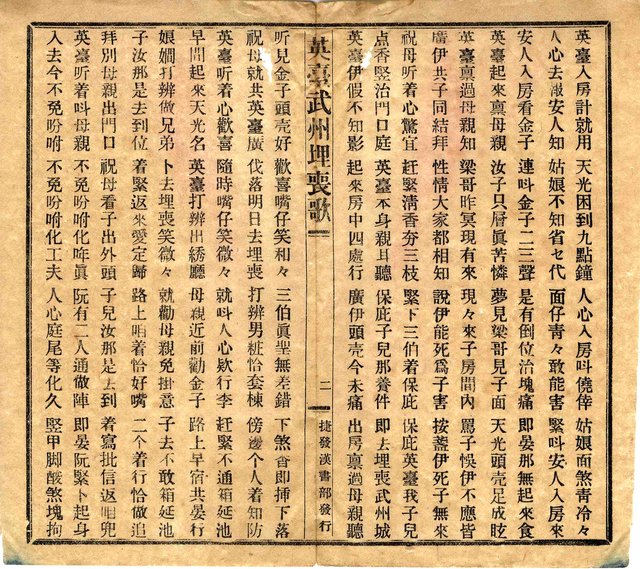 英臺入房計就用 天光困到九點鐘 人心入房呌僥倖 姑娘面煞青冷々
人心去報安人知 姑娘不知省乜代 面仔青々敢能害 緊呌安人入房來
安人入房看金子 連呌金子二三聲 是有倒位治塊痛 即晏那無起來食
英臺起來稟母親 汝子只層眞苦憐 夢見梁哥見子面 天光頭壳足成眩
英臺稟過母親知 梁哥昨冥現有來 現々來子房間內 罵子悞伊不應皆
廣伊共子同結拜 性情大家都相知 說伊能死爲子害 按盞伊死子無來
祝母听着心驚宜 赶緊清香夯三枝 緊下三伯着保庇 保庇英臺我子兒
点香緊治門口庭 英臺本身親耳聽 保庇子兒那養件 即去埋喪武州城
英臺伊假不知影 起來房中四處行 廣伊頭壳今未痛 出房稟過母親聽
英臺武州埋喪歌 二 捷發漢書部發行
听見金子頭壳好 歡喜嘴仔笑和々 三伯眞聖無差錯 下煞香即揷下落
祝母就共英臺廣 伐落明日去埋喪 打辨男粧恰套棟 傍邊个人着知防
英臺听着心歡喜 隨時嘴仔笑微々 就呌人心欵行李 赶緊不通箱延池
早間起來天光名 英臺打辨出綉廳 母親近前勸金子 路上早宿共晏行
娘嫺打辨做兄弟 卜去埋喪笑微々 就勸母親免掛意 子去不敢箱延池
子汝那是去到位 着緊返來愛定歸 路上咱着恰好嘴 二个着行恰做追
拜別母親出門口 祝母看子出外頭 子兒汝那是去到 着寫批信返咱兜
英臺听着呌母親 不免吩咐化咋眞 阮有二人通做陣 即晏阮緊卜起身
入去今不免吩咐 不免吩咐化工夫 人心庭尾等化久 竪甲脚酸煞塊拘